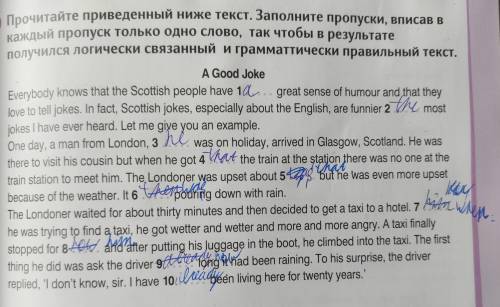 Прочитайте приведенный ниже текст. Заполните пропуски, вписав в
каждый пропуск только одно слово, так чтобы в результате
получился логически связанный и грамматтически правильный текст.
A Good Joke
Everybody knows that the Scottish people have 1 a... great sense of humour and that they
love to tell jokes. In fact, Scottish jokes, especially about the English, are funnier 2 the most
jokes I have ever heard. Let me give you an example.
One day, a man from London, 3 he was on holiday, arrived in Glasgow, Scotland. He was
there to visit his cousin but when he got 4 that the train at the station there was no one at the
train station to meet him. The Londoner was upset about 5 that but he was even more upset
because of the weather. It 6 was pouring down with rain.
The Londoner waited for about thirty minutes and then decided to get a taxi to a hotel. 7 when
he was trying to find a taxi, he got wetter and wetter and more and more angry. A taxi finally
stopped for 8 him and after putting his luggage in the boot, he climbed into the taxi. The first
thing he did was ask the driver 9 how long it had been raining. To his surprise, the driver
replied, 'I don't know, sir. I have 10 already been living here for twenty years.'